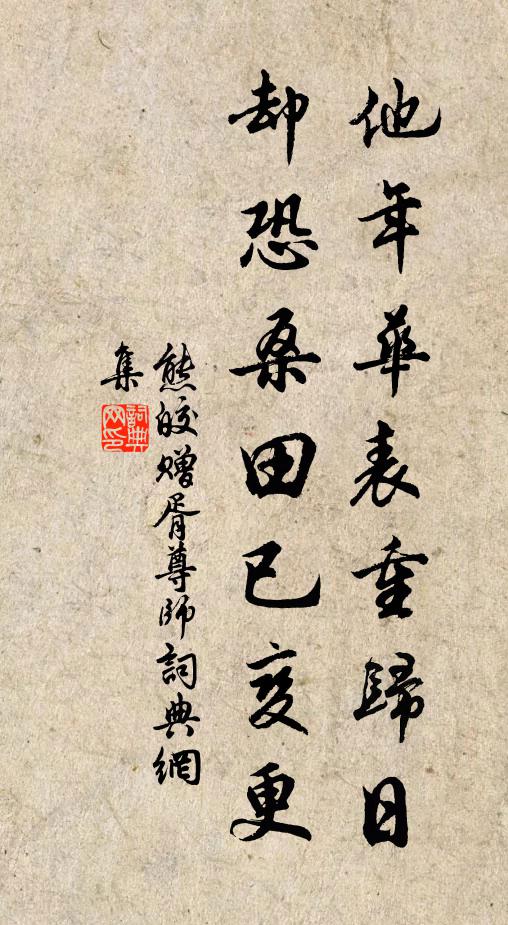 他年華表重歸日
却恐桑田已变更
熊皎赠胥尊师詞典網
集
詞典
网印